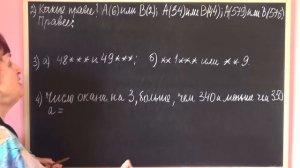 2) Какая правее! А(6) или В(2); А(34) или В(44); А(579) или В(576)
Правее:
3) а) 48*** и 49***; б) **1*** или **9.
4) Число а на 3, больше, чем 340 и меньше чем 350
а =